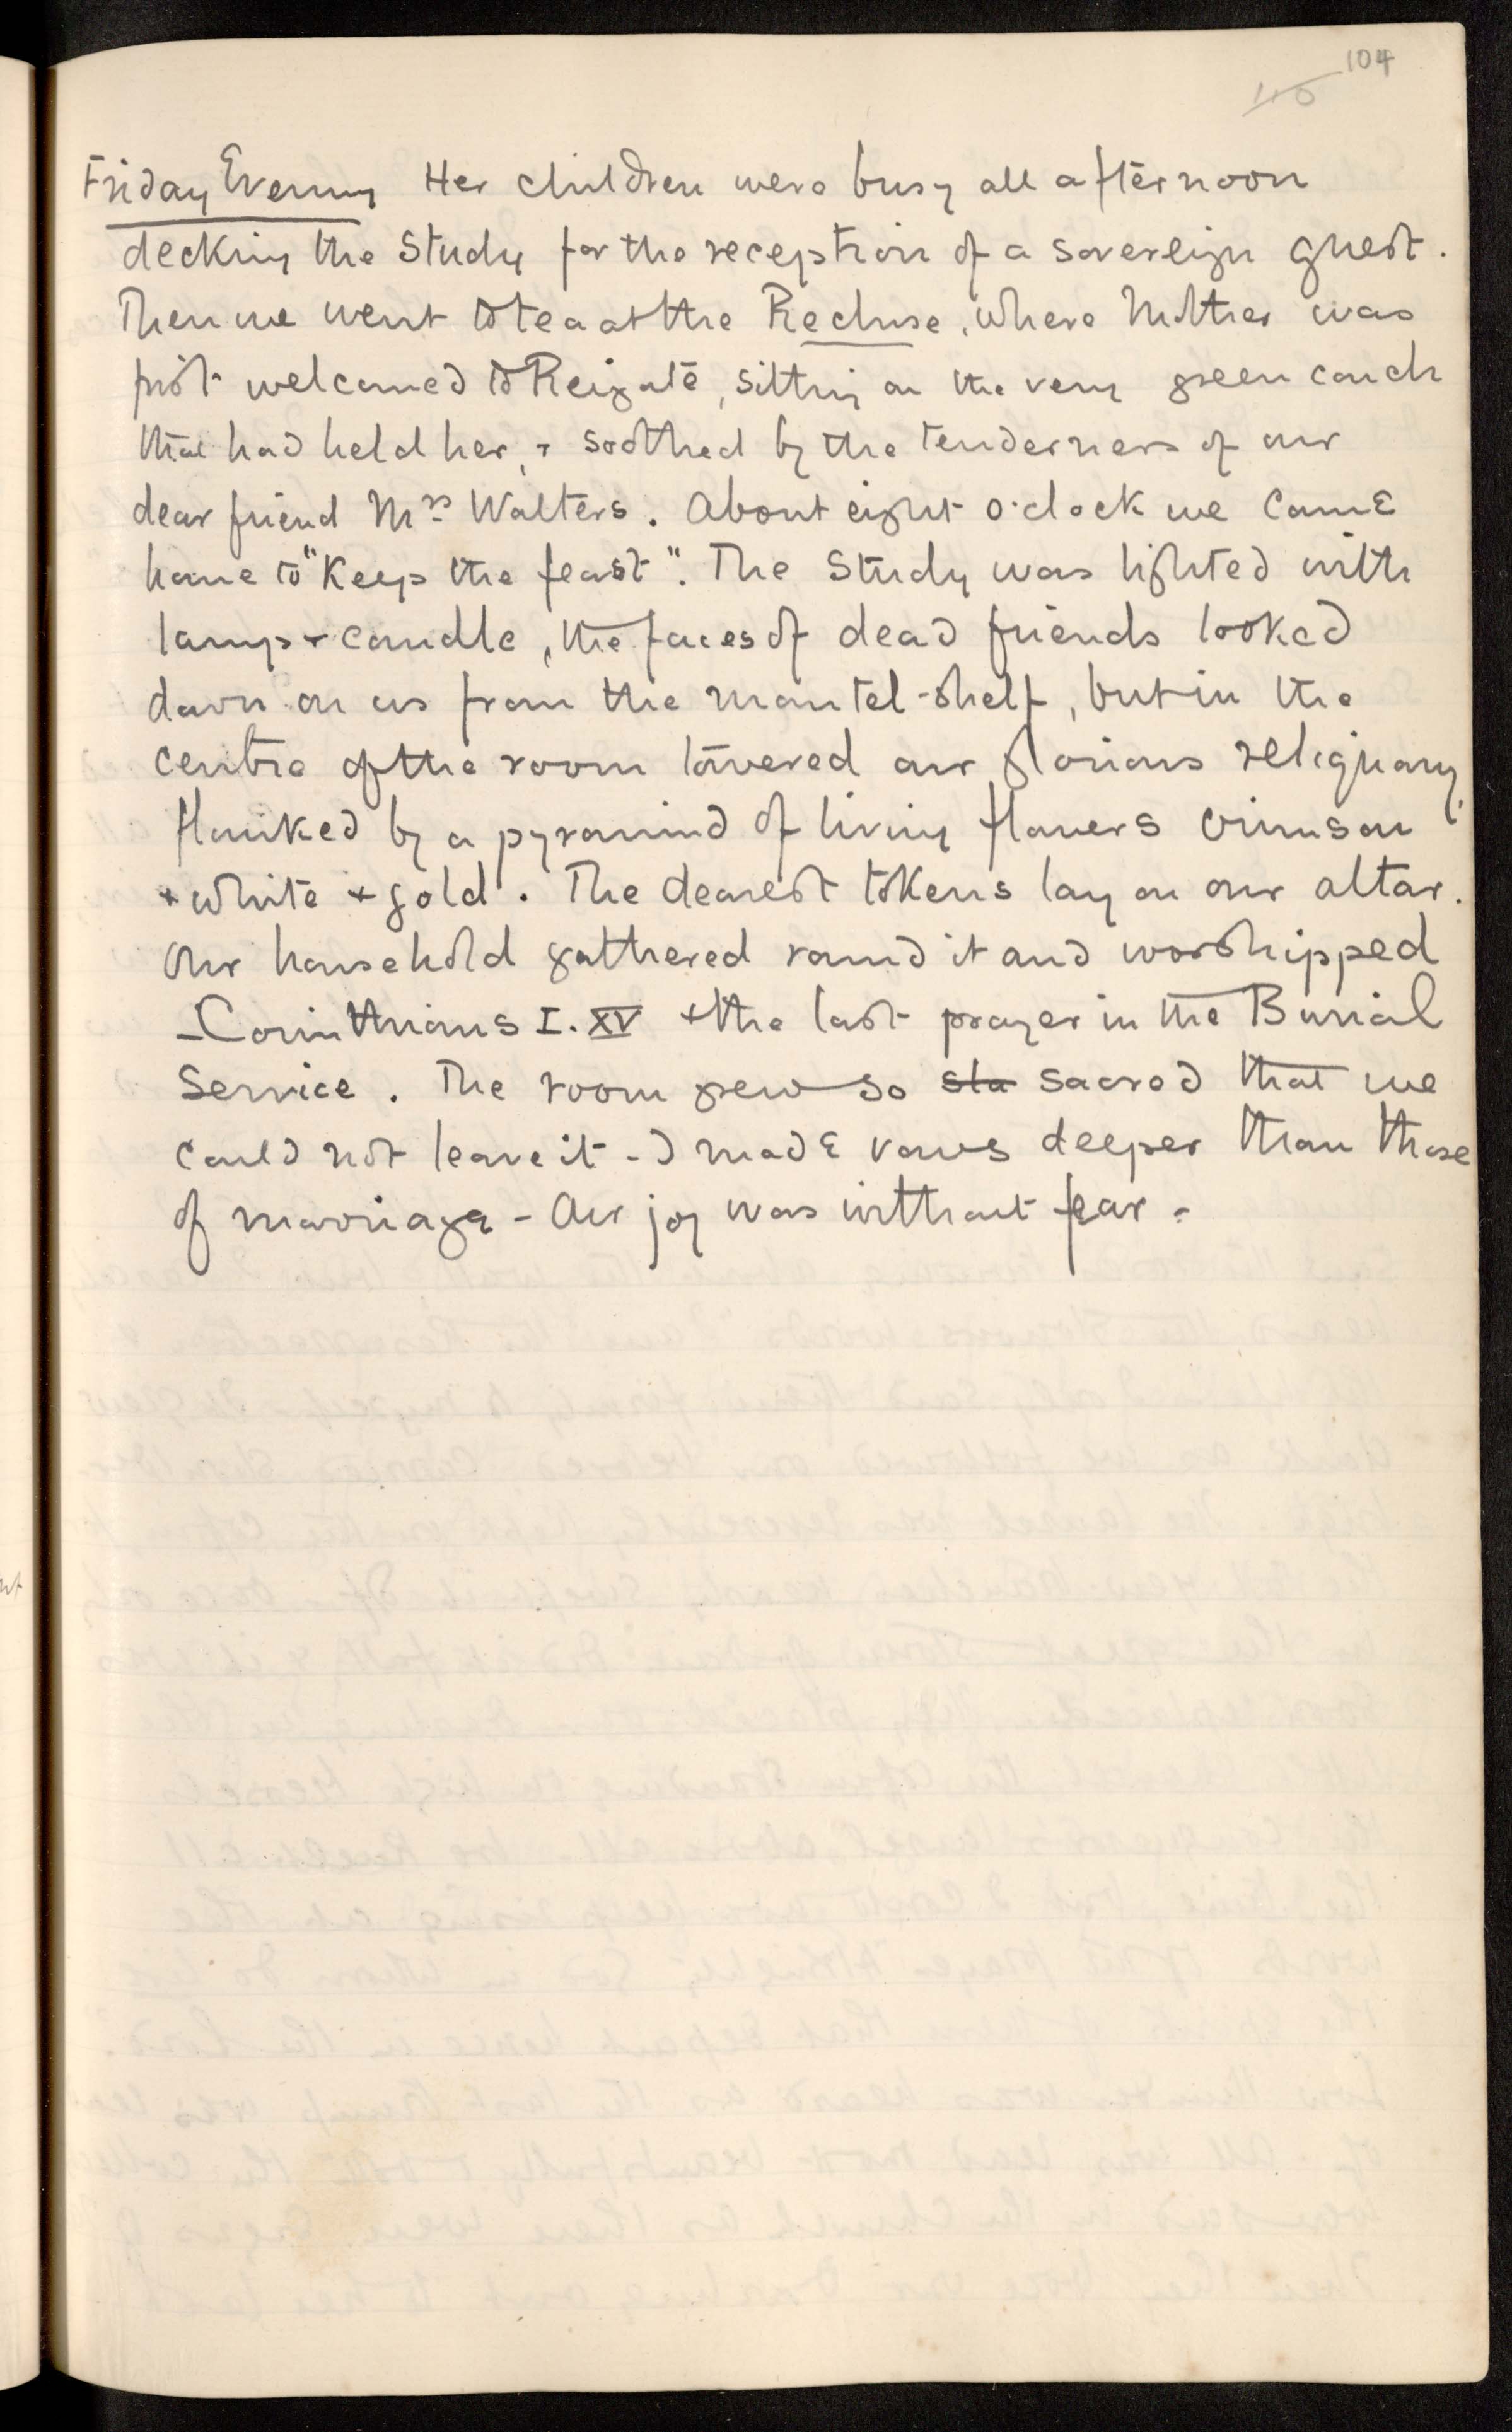 104
Friday Evening Her children were busy all afternoon
decking the Study for the reception of a sovereign guest.
Then we went to tea at the Recluse, where Mother was
first welcomed to Reigate, sitting on the very green couch
that had held her, + soothed by the tenderness of our
dear friend Mrs Walters. About eight o'clock we came
home to "Keep the feast". The Study was lighted with
lamp + candle, the faces of dead friends looked
down on us from the mantel-shelf, but in the
centre of the room towered our glorious reliquary,
flanked by a pyramid of living flowers crimson
+ white + gold. The dearest tokens lay on our altar.
Our household gathered round it and worshipped
- Corinthians I. XV + the last prayer in the Burial
Service. The room grew so sta sacred that we
could not leave it - I made vows deeper than those
of marriage - Our joy was without fear -